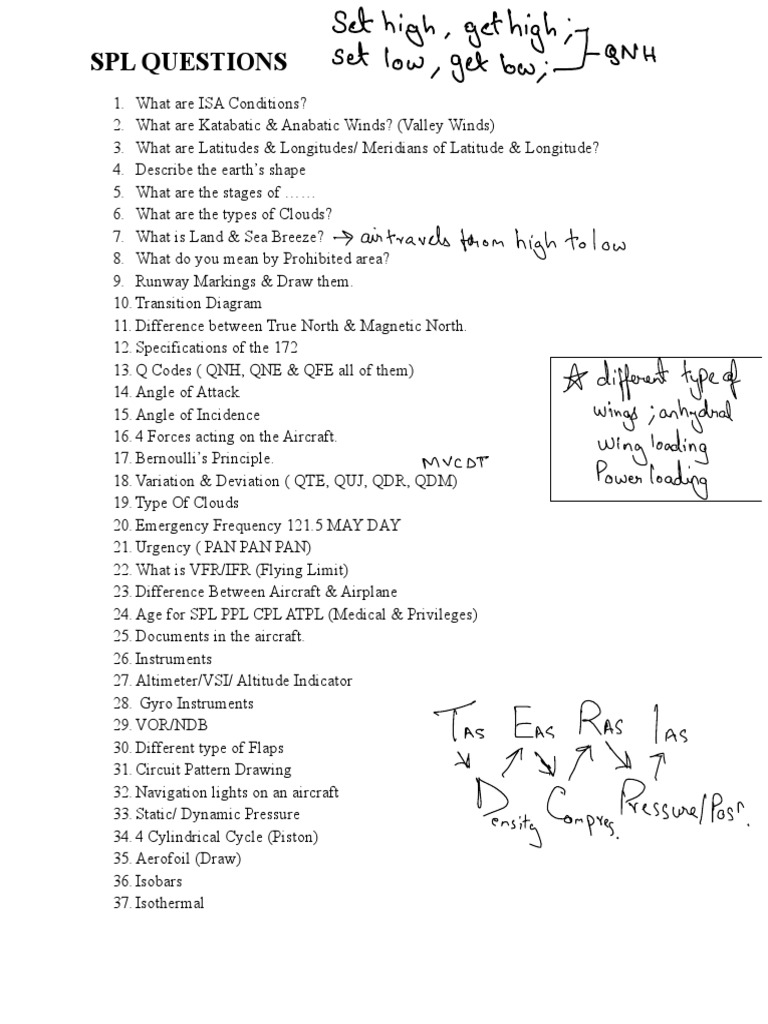 Set high, get high;
set low, get low;
QNH
SPL QUESTIONS
1. What are ISA Conditions?
2. What are Katabatic & Anabatic Winds? (Valley Winds)
3. What are Latitudes & Longitudes/ Meridians of Latitude & Longitude?
4. Describe the earth’s shape
5. What are the stages of ……
6. What are the types of Clouds?
7. What is Land & Sea Breeze? → air travels from high to low
8. What do you mean by Prohibited area?
9. Runway Markings & Draw them.
10. Transition Diagram
11. Difference between True North & Magnetic North.
12. Specifications of the 172
13. Q Codes ( QNH, QNE & QFE all of them)
14. Angle of Attack
15. Angle of Incidence
16. 4 Forces acting on the Aircraft.
17. Bernoulli’s Principle.
MVCDT
18. Variation & Deviation ( QTE, QUJ, QDR, QDM)
19. Type Of Clouds
20. Emergency Frequency 121.5 MAY DAY
21. Urgency ( PAN PAN PAN)
22. What is VFR/IFR (Flying Limit)
23. Difference Between Aircraft & Airplane
24. Age for SPL PPL CPL ATPL (Medical & Privileges)
25. Documents in the aircraft.
26. Instruments
27. Altimeter/VSI/ Altitude Indicator
28. Gyro Instruments
29. VOR/NDB
30. Different type of Flaps
31. Circuit Pattern Drawing
32. Navigation lights on an aircraft
33. Static/ Dynamic Pressure
34. 4 Cylindrical Cycle (Piston)
35. Aerofoil (Draw)
36. Isobars
37. Isothermal
☆ different type of
wings ; anhydral
wing loading
Power loading
TAS EAS RAS IAS
Density Compres. Pressure/Posn.